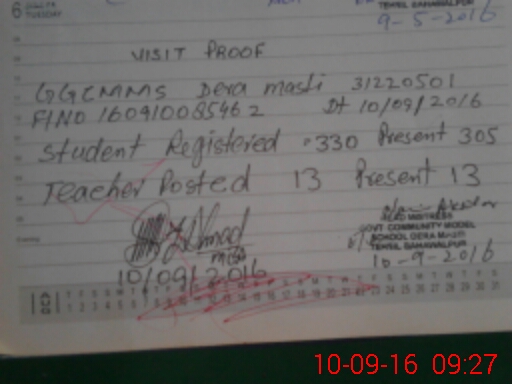 6 TUESDAY
TEHSIL BAHAWALPUR
9-5-2016
VISIT PROOF
GGCMMS Dera masti 31220501
FINO 16091008546 2 Dt 10/09/2016
Student Registered 330 Present 305
Teacher Posted 13 Present 13
Ahmad
HEAD MISTRESS
GOVT COMMUNITY MODEL
SCHOOL DERA MASTI
TEHSIL BAHAWALPUR
10/09/2016
10-9-2016
10-09-16 09:27